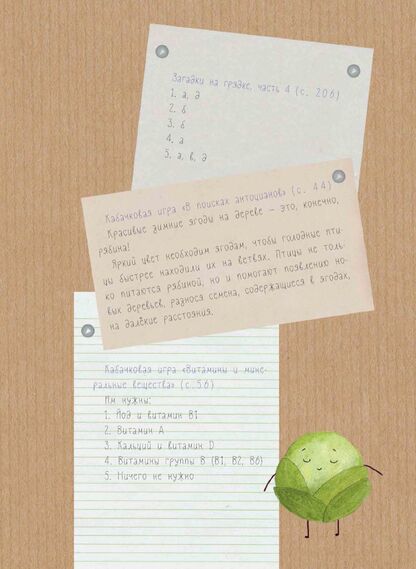 Загадки на грядке, часть 4 (с. 206)
1. а, д
2. б
3. б
4. а
5. а, в, д
Кабачковая игра «В поисках антоцианов» (с. 44)
Красивые зимние ягоды на дереве – это, конечно,
рябина!
Яркий цвет необходим ягодам, чтобы голодные пти-
цы быстрее находили их на ветвях. Птицы не толь-
ко питаются рябиной, но и помогают появлению но-
вых деревьев, разнося семена, содержащиеся в ягодах,
на далёкие расстояния.
Кабачковая игра «Витамины и мине-
ральные вещества» (с.56)
Им нужны:
1. Йод и витамин В1
2. Витамин А
3. Кальций и витамин D
4. Витамины группы В (В1, В2, В6)
5. Ничего не нужно